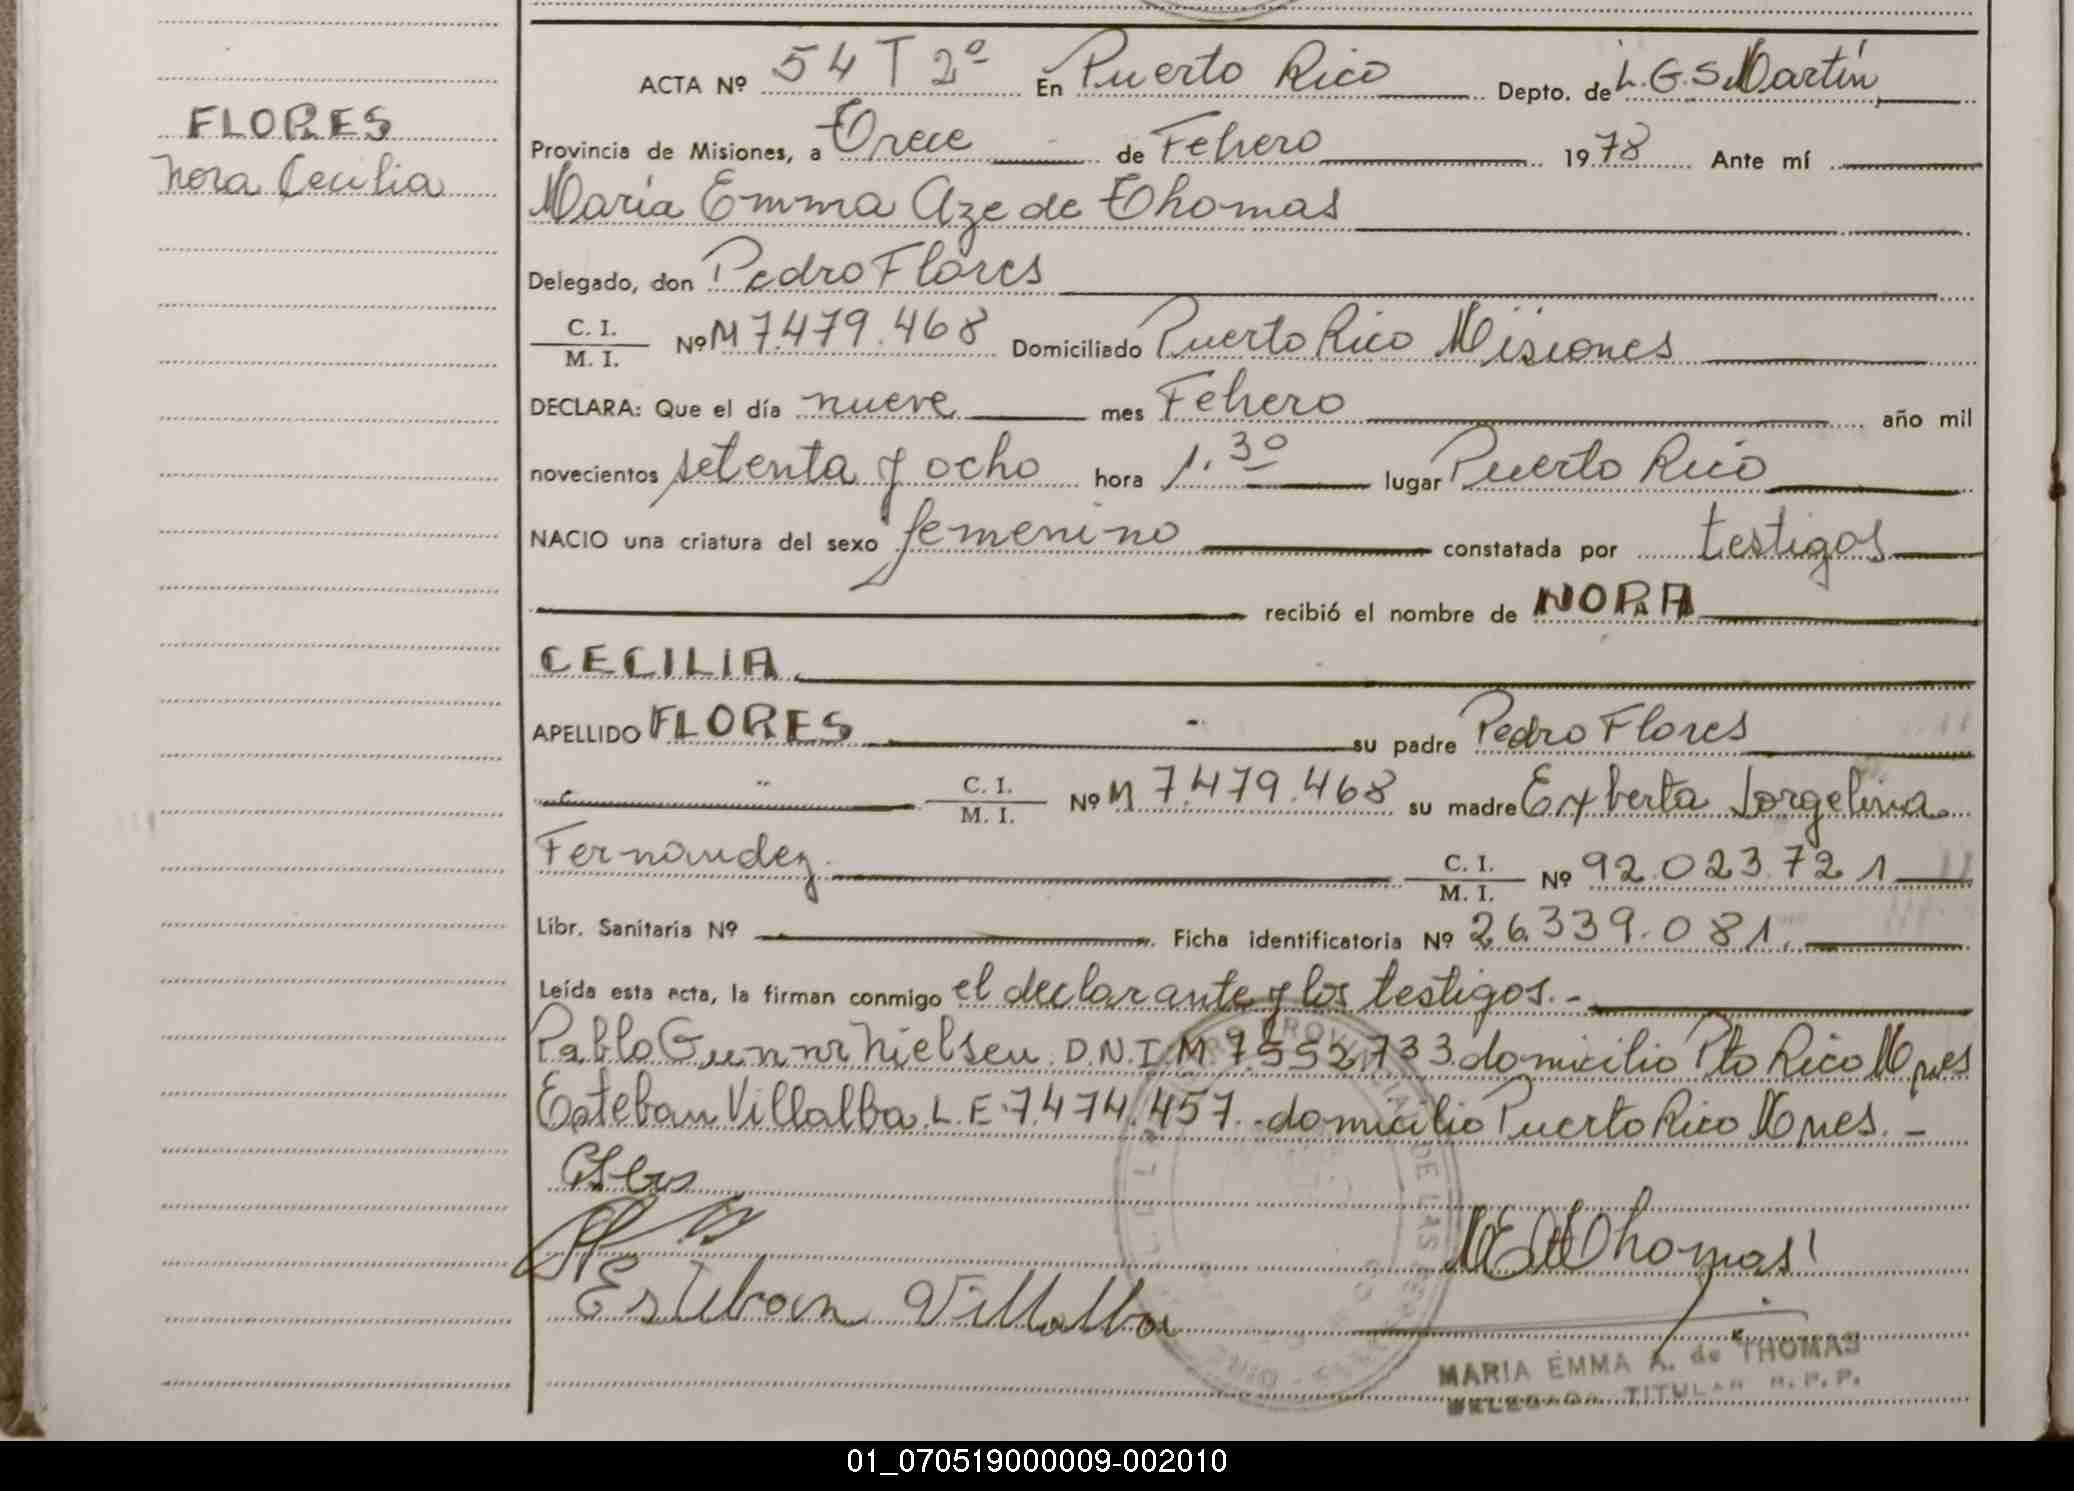 FLORES
Nora Cecilia
ACTA Nº 54 T 2º En Puerto Rico Depto. de L.G.S. Martín
Provincia de Misiones, a Trece de Febrero 1978 Ante mí
María Emma Aze de Thomas
Delegado, don Pedro Flores
C. I. / M. I. Nº M 7.479.468 Domiciliado Puerto Rico Misiones
DECLARA: Que el día nueve mes Febrero año mil
novecientos setenta y ocho hora 1.30 lugar Puerto Rico
NACIO una criatura del sexo femenino constatada por testigos
recibió el nombre de NORA
CECILIA
APELLIDO FLORES su padre Pedro Flores
C. I. / M. I. Nº M 7.479.468 su madre Exberta Jorgelina
Fernandez C. I. / M. I. Nº 92.023.721
Libr. Sanitaria Nº Ficha identificatoria Nº 26.339.081.
Leída esta acta, la firman conmigo el declarante y los testigos.-
Pablo Gunnar Nielsen D.N.I.M. 7.552.733 domicilio Pto Rico Mnes
Esteban Villalba L.E. 7.474.457. domicilio Puerto Rico Mnes.-
MEAThomas
Esteban Villalba
MARIA EMMA A. de THOMAS
DELEGADA TITULAR R. P. P.
01_070519000009-002010